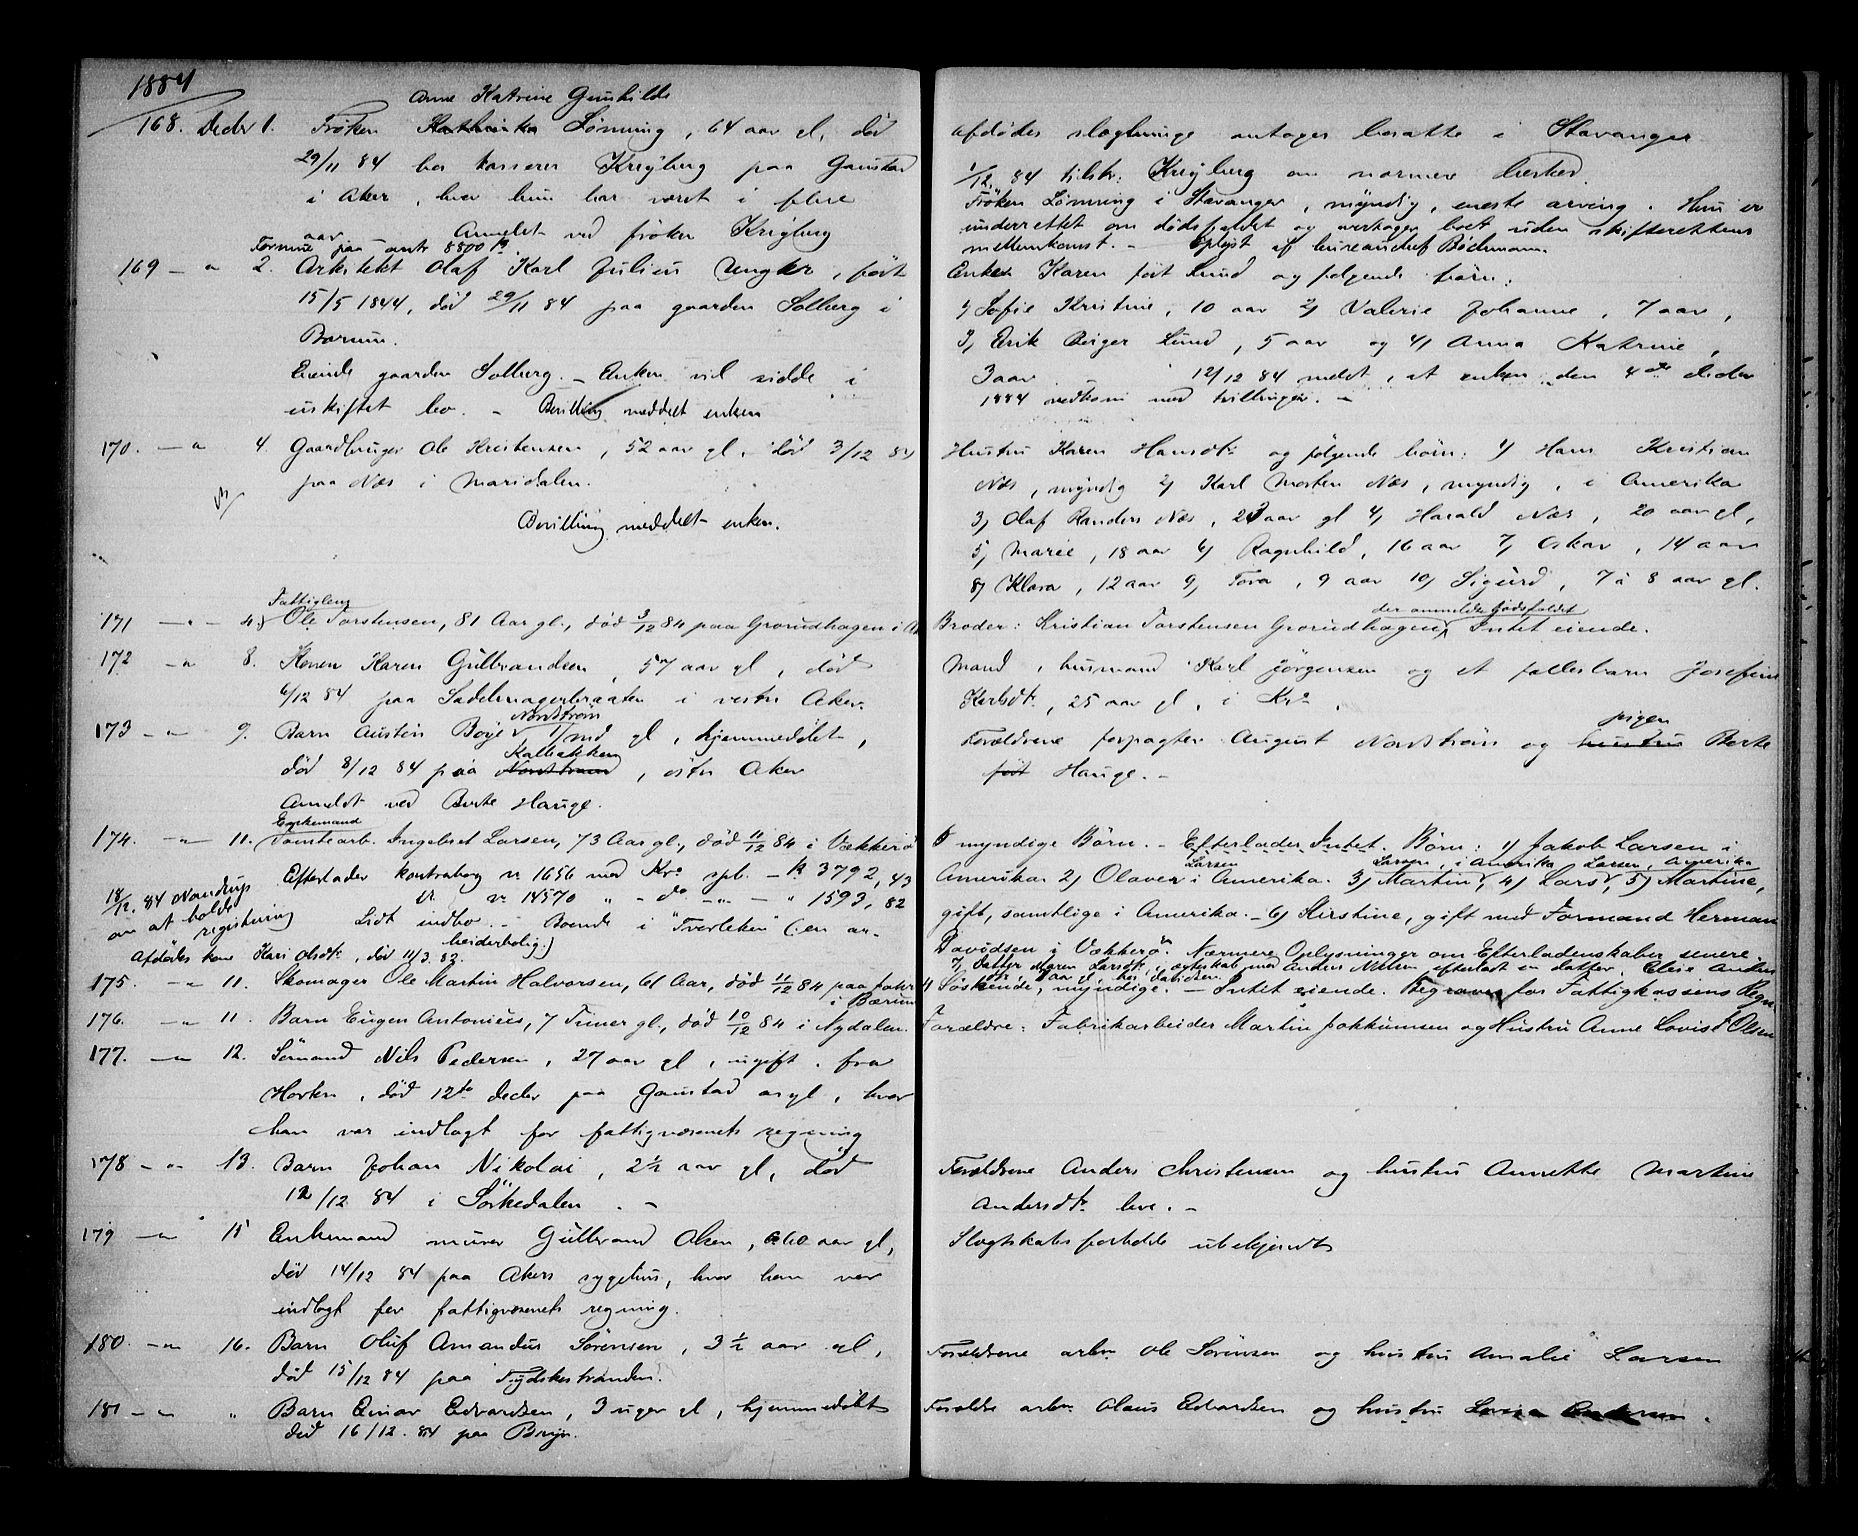 1884
Anne Katrine Gunhilde
168. Decbr 1. Frøken Kathinka Lönning, 64 aar gl, död
29/11 84 hos kasserer Kreyberg paa Gaustad
i Aker, hvor hun har været i flere
aar Anmeldt ved frøken Kreyberg
Formue paa omtr 8800 kr.
169 — " 2. Arkitekt Olaf Karl Julius Unger, födt
15/5 1844, död 29/11 84 paa gaarden Solberg i
Bærum.
Eiende gaarden Solberg. — Enken vil sidde i
uskiftet bo. — Bevilling meddelt enken
170. — " 4. Gaardbruger Ole Kristensen, 52 aar gl, död 3/12 84
paa Næs i Maridalen.
Bevilling meddelt enken.
Fattiglem
171 — " — 4. Ole Torstensen, 81 Aar gl., död 3/12 84 paa Grorudhagen i A
172 — " 8. Konen Karen Gulbrandsen, 57 aar gl, död
6/12 84 paa Sadelmagerbraaten i vestre Aker.
Nordström
173 — " — 9. Barn Austin Böye, 1 md gl, hjemmedöbt,
Kalbakken
död 8/12 84 paa Nordstrand, östre Aker
Anmeldt ved Berte Hauge.
Enkemand
174. — " — 11. Tomtearb. Ingebret Larsen, 73 Aar gl., död 11/12 84 i Vækkerö
Efterlader kontrabog № 1656 med Kra spb. — Kr 3792,43
№ 14570 " — do — " — " 1593,82
18/12. 84 Nandrup
om at holde
registrering
Lidt indbo. — Boende i "Tverleken" (: en ar-
beiderbolig:)
Afdødes kone Kari Olsdtr, död 11/3. 82.
175. — " — 11. Skomager Ole Martin Halvorsen, 61 Aar, död 11/12 84 paa
i Bærum
176. — " 11. Barn Eugen Antonius, 7 Timer gl., död 10/12 84 i Nydalen.
177. — " 12. Sömand Nils Pedersen, 27 aar gl, ugift, fra
Horten, död 12te decbr paa Gaustad asyl, hvor
han var indlagt for fattigvæsenets regning
178 — " — 13. Barn Johan Nikolai, 2½ aar gl, död
12/12 84 i Sörkedalen. —
179 — " 15 Enkemand murer Gulbrand Olsen, 60 aar gl,
död 14/12 84 paa Akers sygehus, hvor han var
indlagt for fattigvæsenets regning.
180. — " — 16. Barn Oluf Amandus Sörensen, 3½ aar gl,
död 15/12 84 paa Tydskestranden.
181 — " " Barn Einar Edvardsen, 3 uger gl, hjemmedöbt
död 16/12. 84 paa Bryn.
Afdødes slægtninge antages bosatte i Stavanger
1/12. 84 tilskr: Kreyberg om nærmere besked.
Frøken Lönning i Stavanger, myndig, eneste arving. Hun er
underrettet om dødsfaldet og overtager boet uden skifterettens
mellemkomst. — Oplyst af bureauchef Böckmann.
Enken Karen født Lund og følgende børn:
1) Sofie Kristine, 10 aar 2) Valerie Johanne, 7 aar,
3) Erik Birger Lund, 5 aar og 4) Anna Katrine,
3 aar. — 12/12 84 meldt, at enken den 4de decbr
1884 nedkom med tvillinger. —
Hustru Karen Hansdtr og følgende børn: 1) Hans Kristian
Næs, myndig 2) Karl Morten Næs, myndig, i Amerika
3) Olaf Randers Næs, 23 aar gl 4) Harald Næs, 20 aar gl,
5) Marie, 18 aar 6) Ragnhild, 16 aar 7) Oskar, 14 aar
8) Klara, 12 aar 9) Tora, 9 aar 10) Sigurd, 7 à 8 aar gl.
der anmeldte Dödsfaldet
Broder: Kristian Torstensen Grorudhagen, Intet eiende.
Mand, husmand Karl Jörgensen og et fællesbarn Josefine
Karlsdtr, 25 aar gl, i Kra.
pigen
Forældrene forpagter August Nordström og hustru Berte
født Hauge. —
6 myndige Börn. — Efterlader Intet. Börn: 1) Jakob Larsen i
Larsen Larsen, i Amerika Larsen, Amerika
Amerika. 2) Olaves i Amerika. 3) Martin, 4) Lars, 5) Martine,
gift, samtlige i Amerika. — 6) Kirstine, gift med Formand Herman
Davidsen i Vækkerö. Nærmere Oplysninger om Efterladenskaber senere.
7) datter Maren Larsdtr, i ægteskab med Anders Nilsen efterladt en datter, Elise Anders
datter, aar gl, hos Davidsen.
4 Söskende, myndige. — Intet eiende. Begraves for Fattigkassens Regn.
Forældre: Fabrikarbeider Martin Jokkumsen og Hustru Anne Lovise Olsen
Forældrene Anders Christensen og hustru Annette Martine
Andersdtr leve. —
Slægtskabsforholde ubekjendt
Forældrene arbr Ole Sörensen og hustru Amalie Larsen
Forældre arbr. Olaus Edvardsen og hustru Lovisa Andersen.